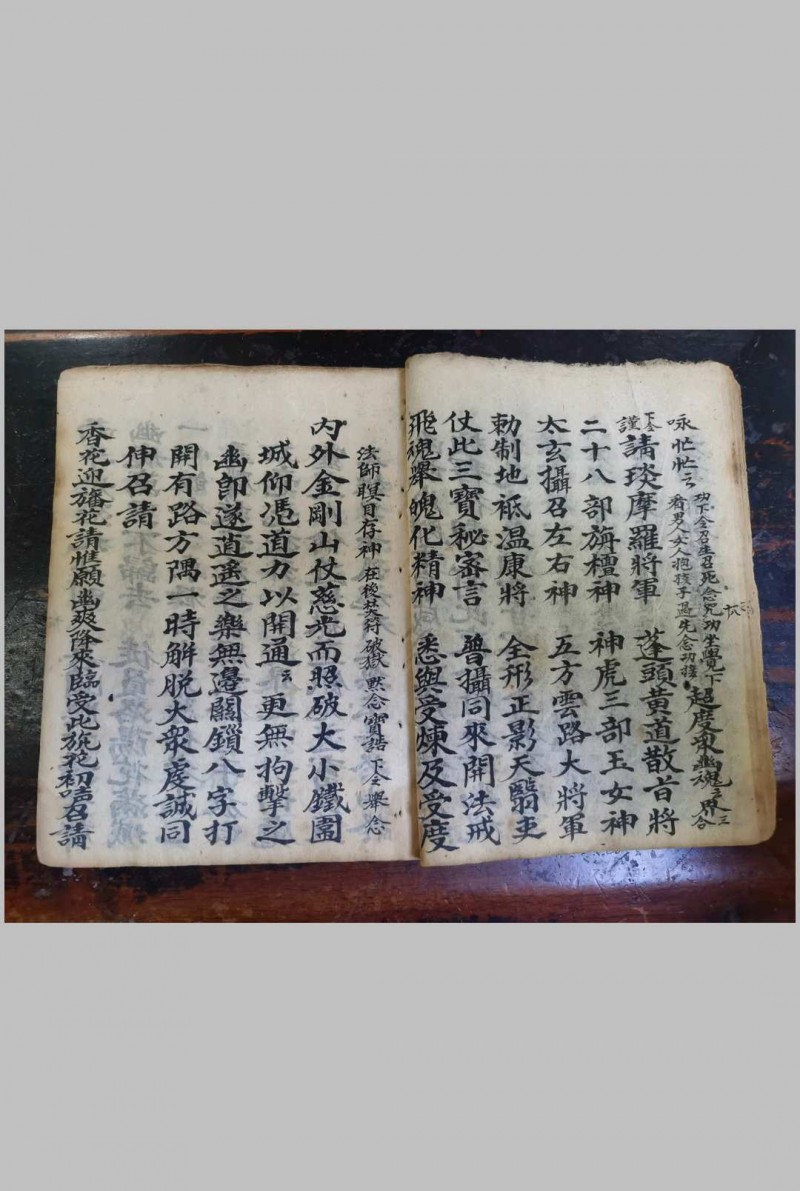 咏忙忙云 功下仝召生召死念咒功坐覺下 超度衆幽魂
看男人女人抱孩子過先念功接
下仝
謹請琰摩羅將軍 蓬頭黄道散首將
二十八部旃檀神 神虎三部玉女神
太玄攝召左右神 五方雲路大將軍
勅制地祇温康將 全形正影天翳吏
仗此三寶秘審言 普攝同來開法戒
飛魂舉魄化精神 悉與受煉及受度
法師瞑目存神 在後焚符破獄 默念寶誥 下仝舉念
内外金剛山仗慈光而照破大小鐵圍
城仰憑道力以開通云更無拘擊之
幽即遂逍遥之樂無邊關鎖八字打
開有路方隅一時解脱大衆虔誠同
伸召請
香花迎旛花請惟願幽爽降來臨受此旛花初召請